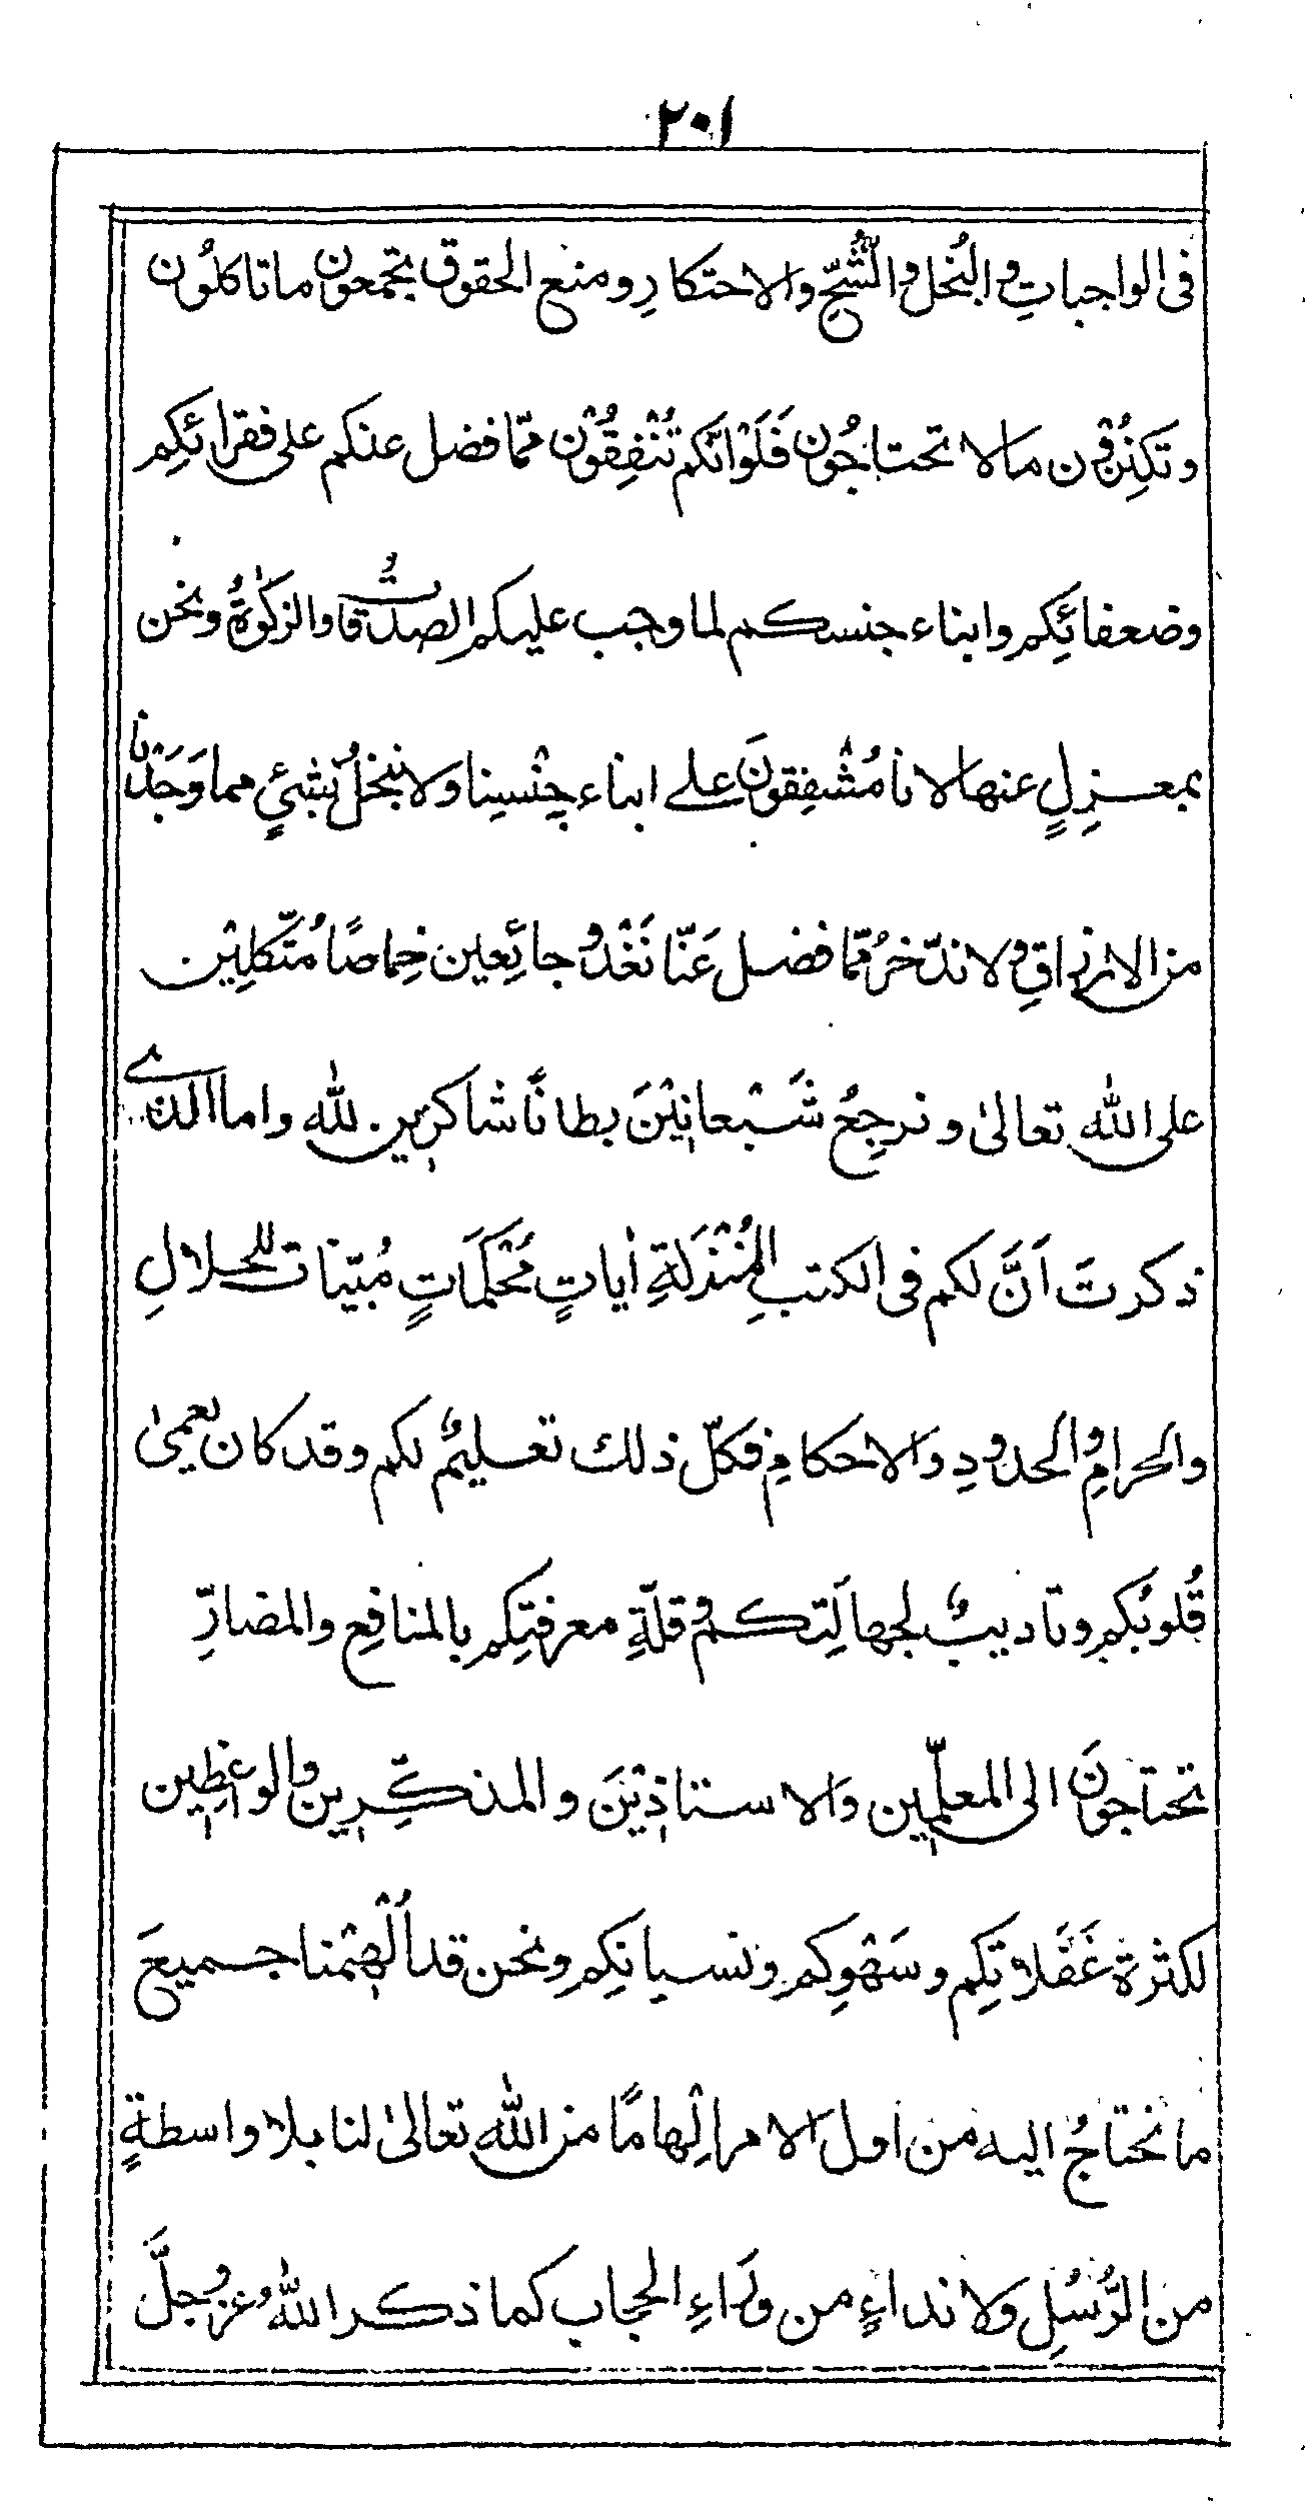 ٢٠١
فى الواجباتِ والبُخل والشُّحِّ والاحتكارِ ومنع الحقوق تجمعون ما تاكلُون
وتكنِزُون مالا تحتاجُون فَلَوْ انّكم تُنْفِقُوْن ممّا فضل عنكم على فقرائكِم
وضعفائكِم وابناء جنسكم لما وجب عليكم الصدقاتُ والزكٰوةُ ونحن
بمعزِلٍ عنها لانا مُشْفِقونَ على ابناء جِنْسِنا ولا نبخلُ بشئٍ مما وَجَدْنا
من الارزاقِ ولا ندّخرُ ممّا فضل عَنّا نَغْدُو جائِعين خِماصًا مُتّكلِيْن
على الله تعالىٰ ونرجِعُ شَبْعانِيْنَ بطانًا شاكرين لله واما الذى
ذكرتَ اَنَّ لكم فى الكتبِ المُنْزَلَةِ اٰياتٍ مُحْكَمَاتٍ مُبيّنات للحلالِ
والحرامِ والحدودِ والاحكامِ فكلّ ذلك تعليمٌ لكم وقد كان لعمىٰ
قُلوبِكم وتاديبٌ لجهالَتِكم وقلّةِ معرفتِكم بالمنافِعِ والمضارِّ
تحتاجونَ الى المعلّمين والاستاذِيْنَ والمذكّرِين والواعظِين
لكثرة غَفَلاتكِم وسَهْوِكم ونسيانكِم ونحن قد اُلْهِمْنا جميعَ
ما نحتاجُ اليه من اول الامر اِلْهامًا من الله تعالىٰ لنا بلا واسطةٍ
من الرُّسُلِ ولا نداءٍ من وَراءِ الحجاب كما ذكر اللهُ عز وجلَّ